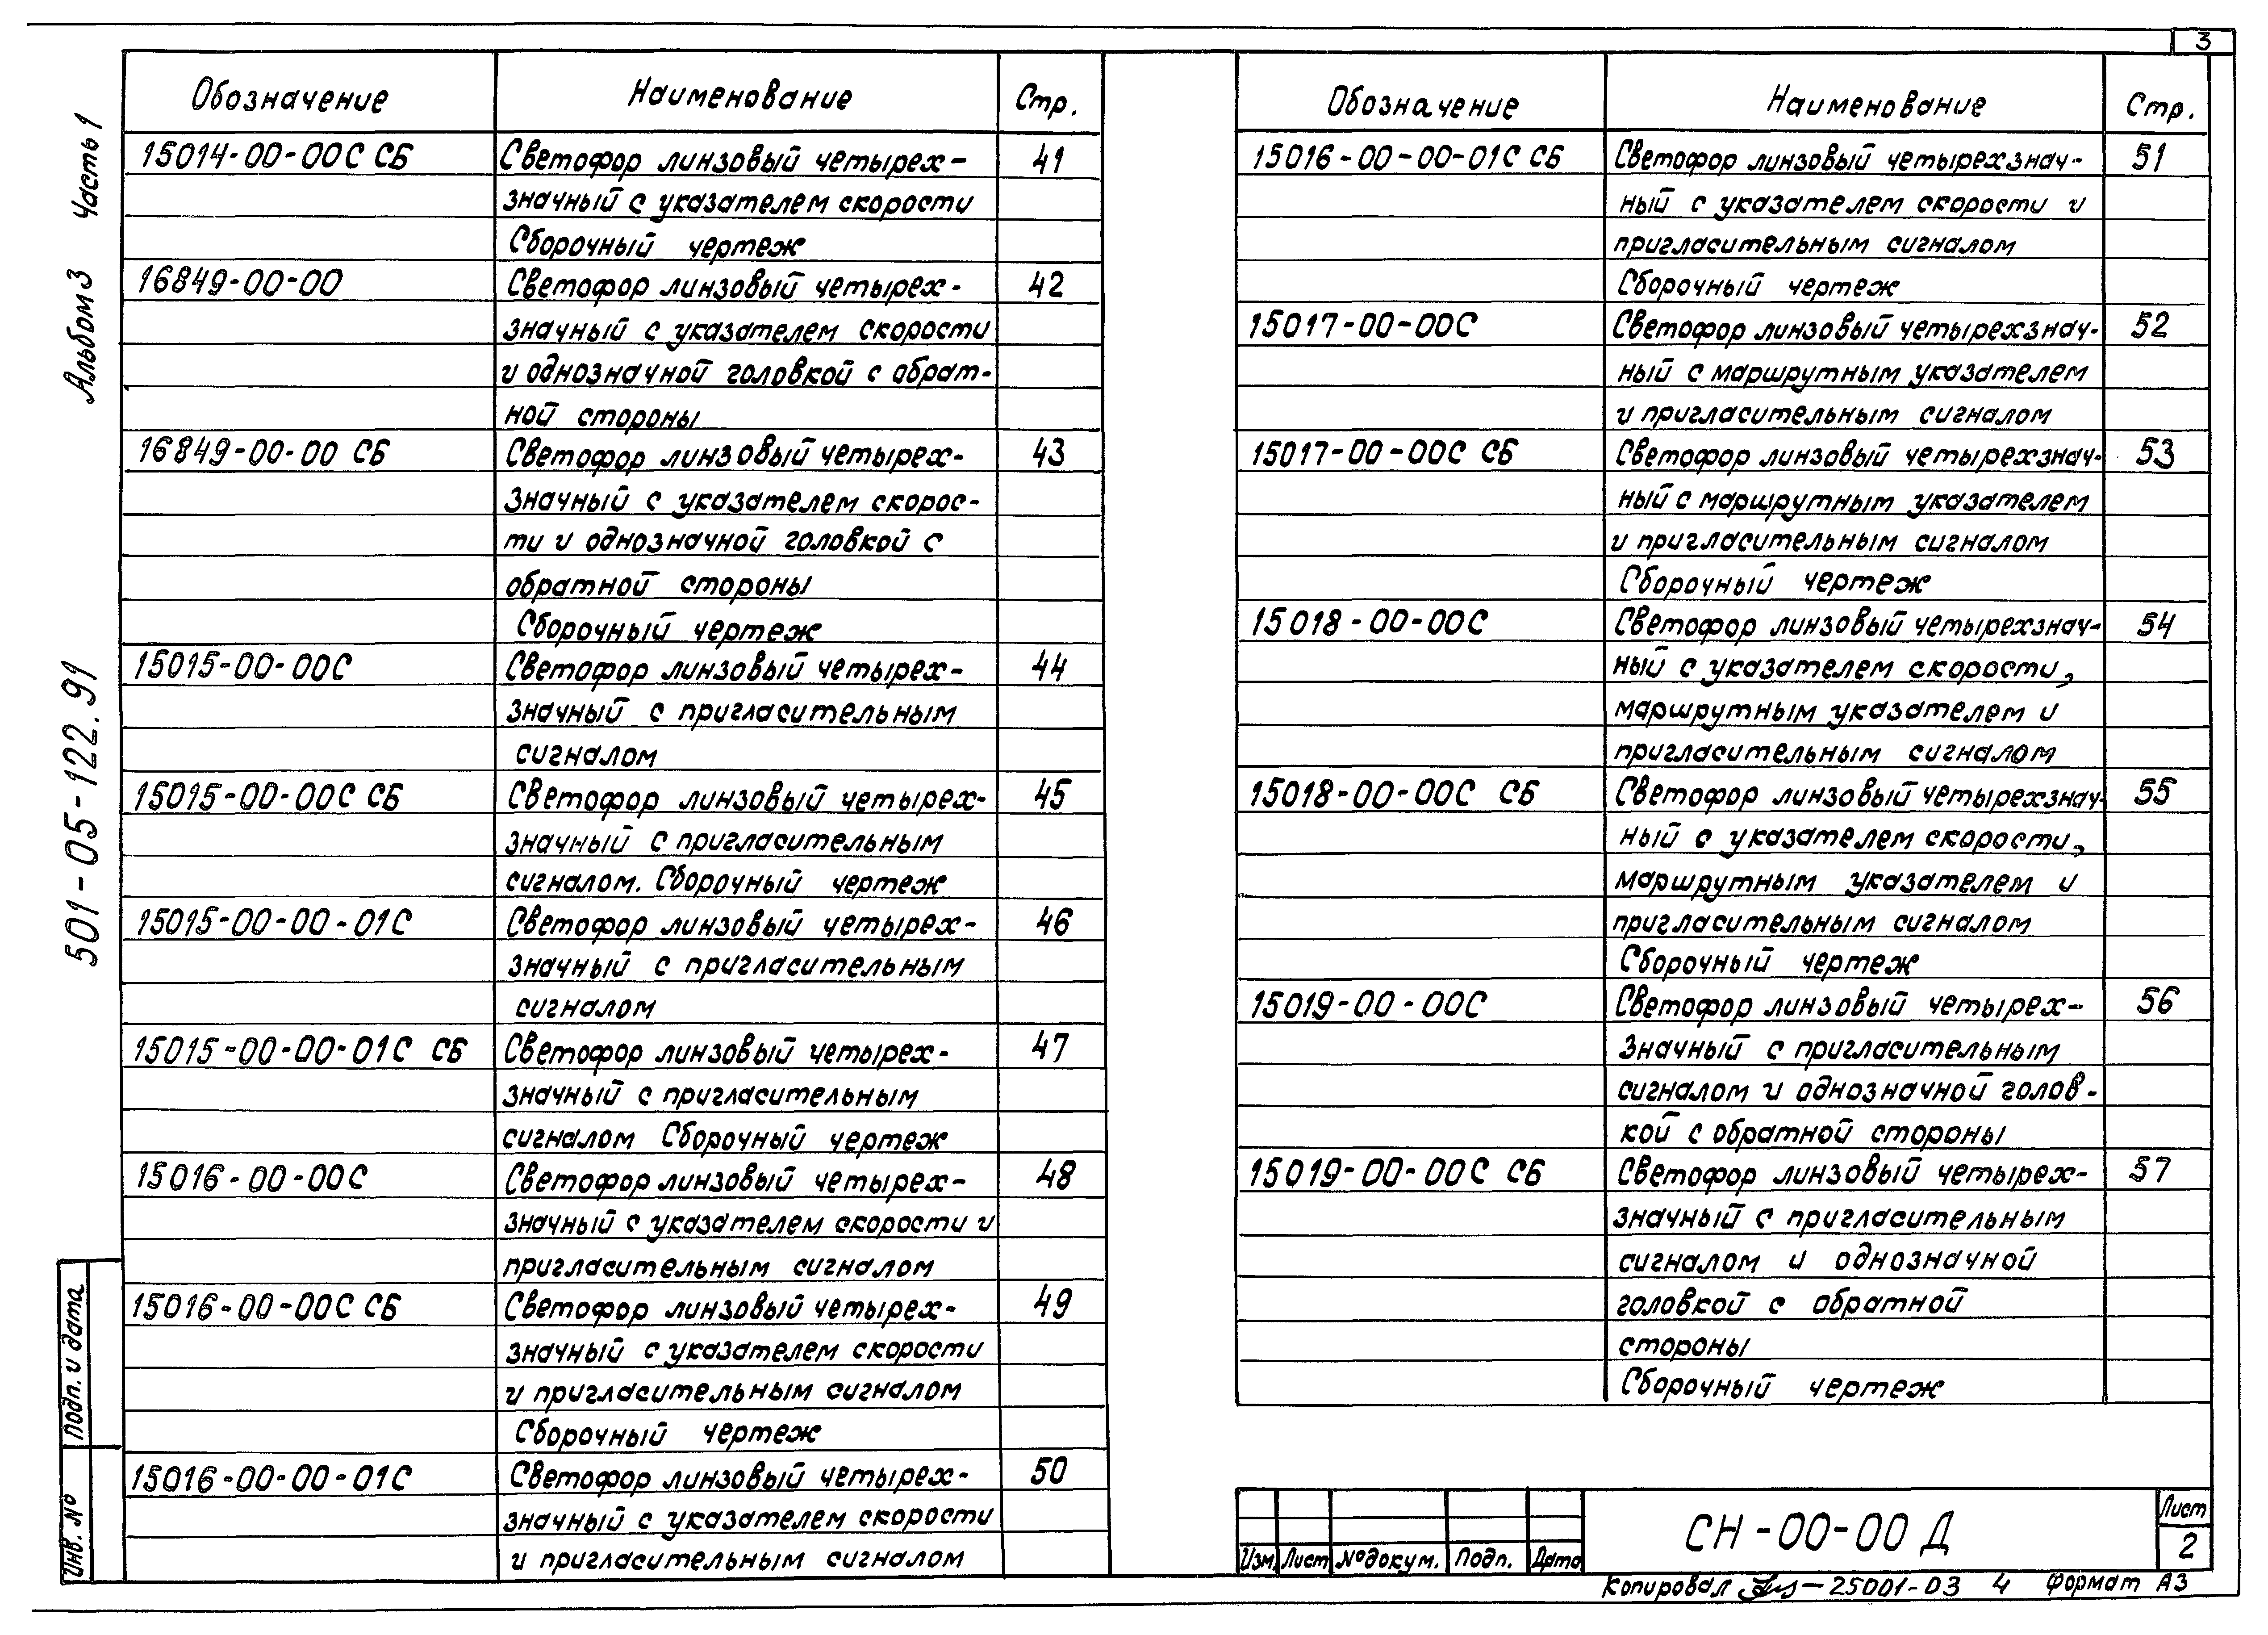 3
Альбом 3 Часть 1
501-05-122.91
Подп. и дата
Инв. №
Обозначение Наименование Стр.
15014-00-00С СБ Светофор линзовый четырех- 41
значный с указателем скорости
Сборочный чертеж
16849-00-00 Светофор линзовый четырех- 42
значный с указателем скорости
и однозначной головкой с обрат-
ной стороны
16849-00-00 СБ Светофор линзовый четырех- 43
значный с указателем скорос-
ти и однозначной головкой с
обратной стороны
Сборочный чертеж
15015-00-00С Светофор линзовый четырех- 44
значный с пригласительным
сигналом
15015-00-00С СБ Светофор линзовый четырех- 45
значный с пригласительным
сигналом. Сборочный чертеж
15015-00-00-01С Светофор линзовый четырех- 46
значный с пригласительным
сигналом
15015-00-00-01С СБ Светофор линзовый четырех- 47
значный с пригласительным
сигналом Сборочный чертеж
15016-00-00С Светофор линзовый четырех- 48
значный с указателем скорости и
пригласительным сигналом
15016-00-00С СБ Светофор линзовый четырех- 49
значный с указателем скорости
и пригласительным сигналом
Сборочный чертеж
15016-00-00-01С Светофор линзовый четырех- 50
значный с указателем скорости
и пригласительным сигналом
Обозначение Наименование Стр.
15016-00-00-01С СБ Светофор линзовый четырехзнач- 51
ный с указателем скорости и
пригласительным сигналом
Сборочный чертеж
15017-00-00С Светофор линзовый четырехзнач- 52
ный с маршрутным указателем
и пригласительным сигналом
15017-00-00С СБ Светофор линзовый четырехзнач- 53
ный с маршрутным указателем
и пригласительным сигналом
Сборочный чертеж
15018-00-00С Светофор линзовый четырехзнач- 54
ный с указателем скорости,
маршрутным указателем и
пригласительным сигналом
15018-00-00С СБ Светофор линзовый четырехзнач- 55
ный с указателем скорости,
маршрутным указателем и
пригласительным сигналом
Сборочный чертеж
15019-00-00С Светофор линзовый четырех- 56
значный с пригласительным
сигналом и однозначной голов-
кой с обратной стороны
15019-00-00С СБ Светофор линзовый четырех- 57
значный с пригласительным
сигналом и однозначной
головкой с обратной
стороны
Сборочный чертеж
Изм. Лист № докум. Подп. Дата
СН-00-00 Д
Лист
2
Копировал 25001-03 4 Формат А3